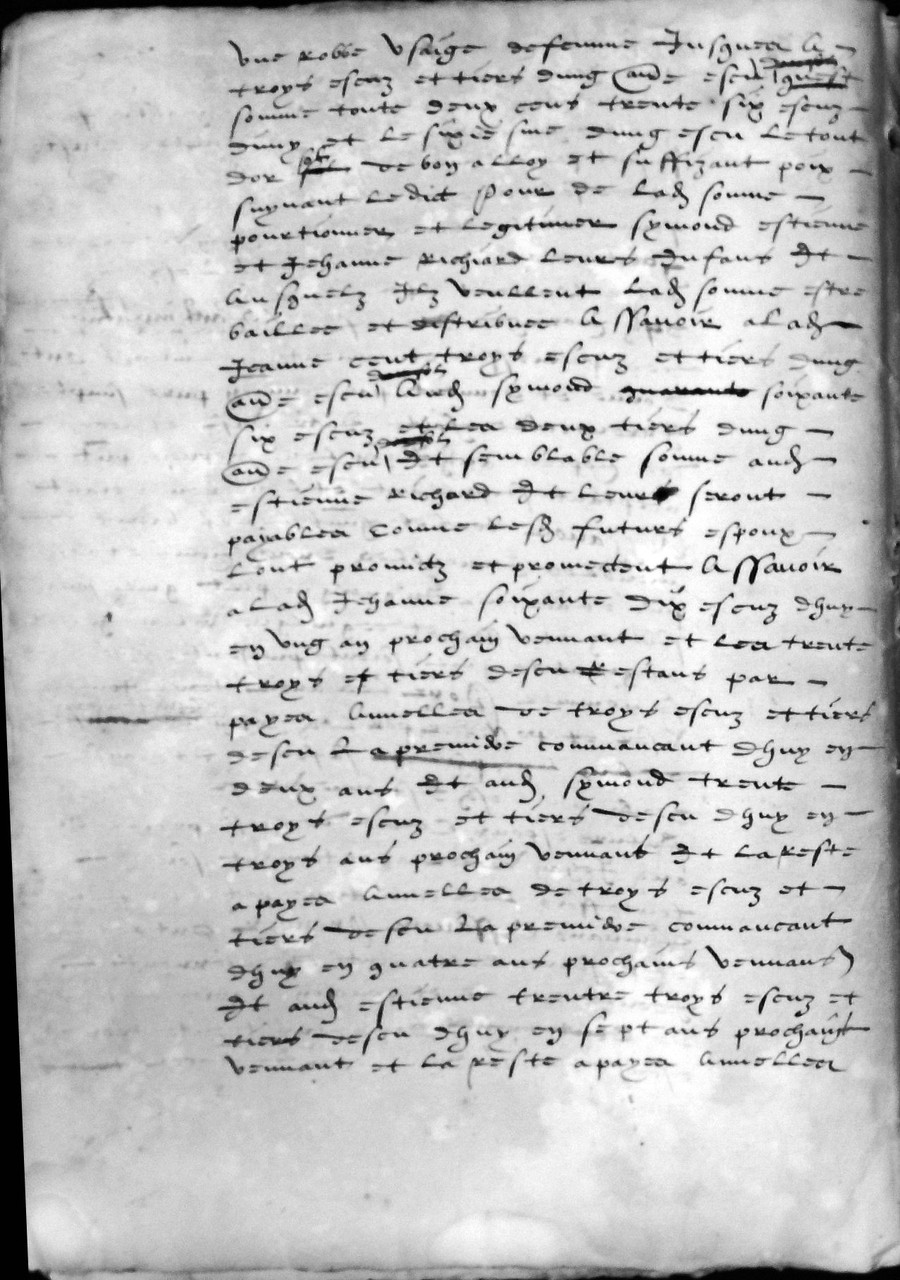 une robbe usaige de femme Jusques a
troys escuz et tiers dung aude escu quest
somme toute deux cens trente six escuz
dmy et le sixie sme dung escu le tout
dor de bon alloy et suffizant poix
suyvant ledict pour de lad somme
pourtionner et legitimer symond estienne
et Jehanne Richard leurs Enfans Et
Ausquelz Ilz veullent lad somme estre
baillee et distribuee Assavoir a lad
Jeanne cent troys escuz et tiers dung
aude escu Aud symond quarante soixante
six escuz et les deux tiers dung
aude escu Et semblable somme aud
estienne Richard Et leurs seront
payables comme lesd futurs espoux
lont promictz et promectent Assavoir
a lad Jehanne soixante dix escuz dhuy
en ung an prochain vennant et les trente
troys et tiers descu Restans par
payes Annelles de troys escuz et tiers
descu La premiere commancant dhuy en
deux ans Et aud symond trente
troys escuz et tiers descu dhuy en
troys ans prochain vennans Et la Reste
a payes Annelles de troys escuz et
tiers descu La premiere commancant
dhuy en quatre ans prochains vennans
Et aud estienne trentre troys escuz et
tiers descu dhuy en sept ans prochains
vennant et la Reste a payes Annelles